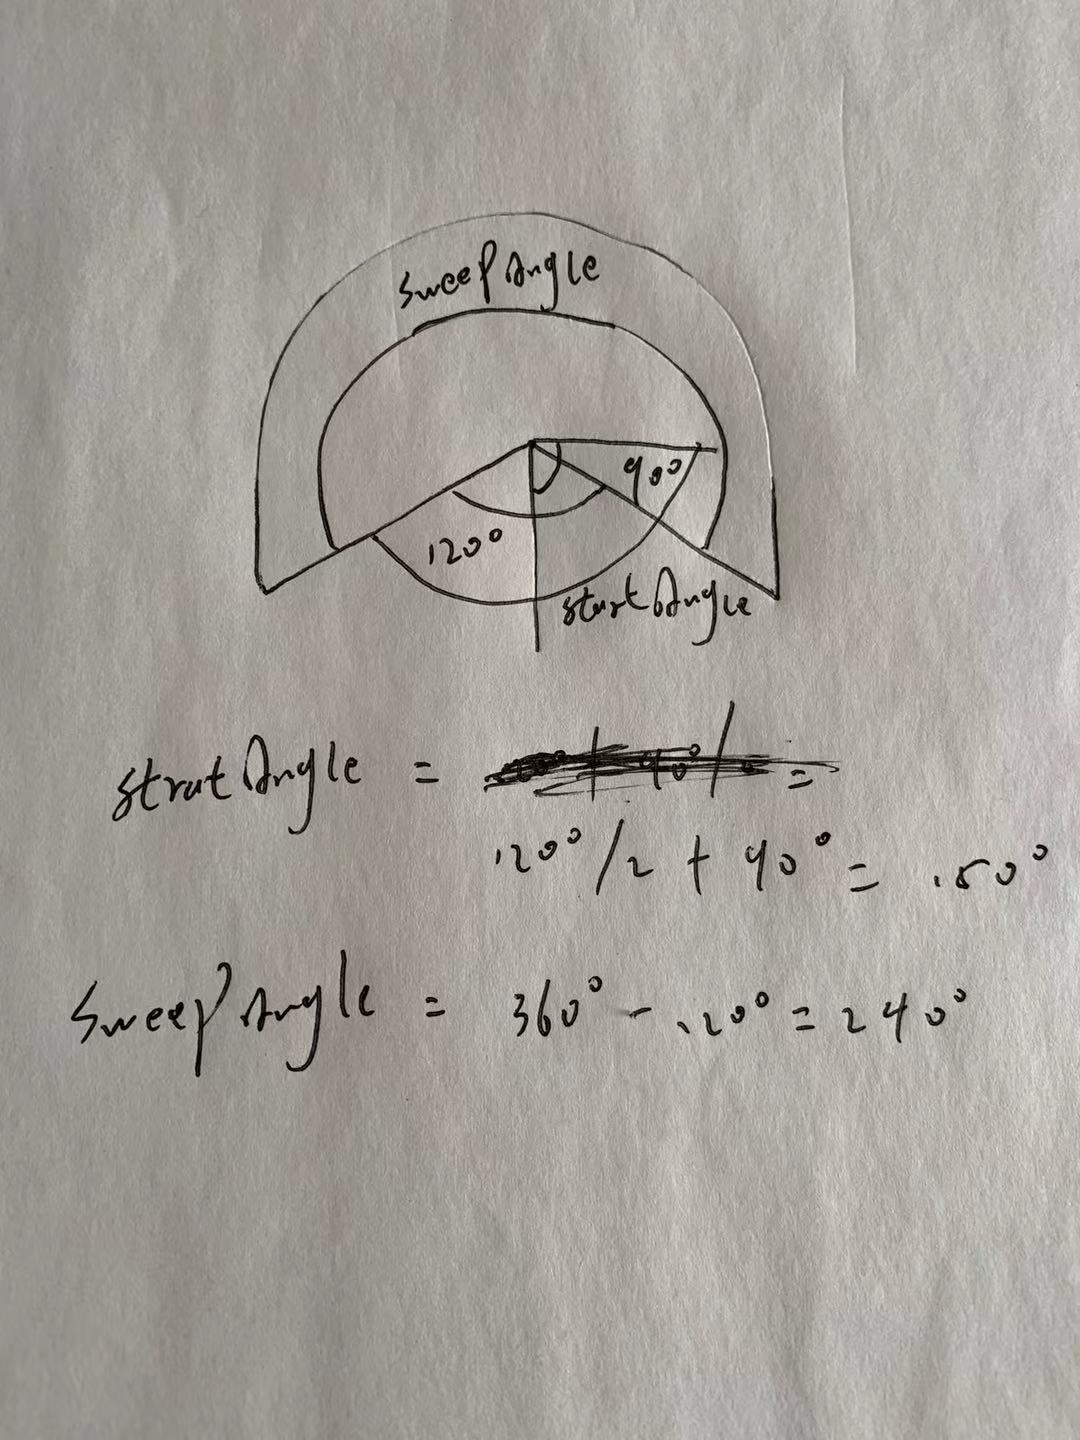 sweep Angle
90°
120°
start Angle
strat Angle =
=
120°/2 + 90° = 150°
sweep Angle = 360° - 120° = 240°